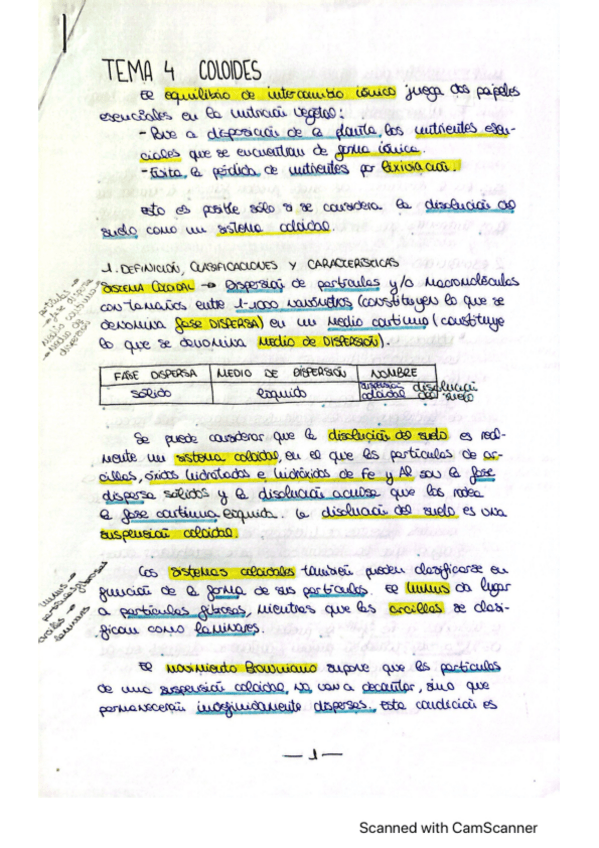 TEMA 4 COLOIDES
El equilibrio de intercambio iónico juega dos papeles
esenciales en la nutrición vegetal:
- Pone a disposición de la planta, los nutrientes esen-
ciales que se encuentran de forma iónica.
- Evita la pérdida de nutrientes por lixiviación.
Esto es posible sólo si se considera la disolución del
suelo como un sistema coloidal.
1. DEFINICIÓN, CLASIFICACIONES Y CARACTERÍSTICAS
SISTEMA COLOIDAL → Dispersión de partículas y/o macromoléculas
con tamaños entre 1-1000 nanómetros (constituyen lo que se
denomina FASE DISPERSA) en un medio continuo (constituye
lo que se denomina MEDIO DE DISPERSIÓN).
FASE DISPERSA MEDIO DE DISPERSIÓN NOMBRE
sólido líquido dispersión coloidal disolución del suelo
Se puede considerar que la disolución del suelo es real-
mente un sistema coloidal, en el que las partículas de ar-
cillas, óxidos hidratados e hidróxidos de Fe y Al son la fase
dispersa sólidos y la disolución acuosa que las rodea
la fase continua líquida. La disolución del suelo es una
suspensión coloidal.
Los sistemas coloidales también pueden clasificarse en
función de la forma de sus partículas. El humus da lugar
a partículas fibrosas, mientras que las arcillas se clasi-
fican como laminares.
El movimiento Browniano supone que las partículas
de una suspensión coloidal, no van a decantar, sino que
permanecerán indefinidamente dispersas. Esta condición es
partículas →
→ fase dispersa
medio continuo
→ Medio de
dispersión
humus →
partículas fibrosas
arcillas →
laminares
— 1 —
Scanned with CamScanner